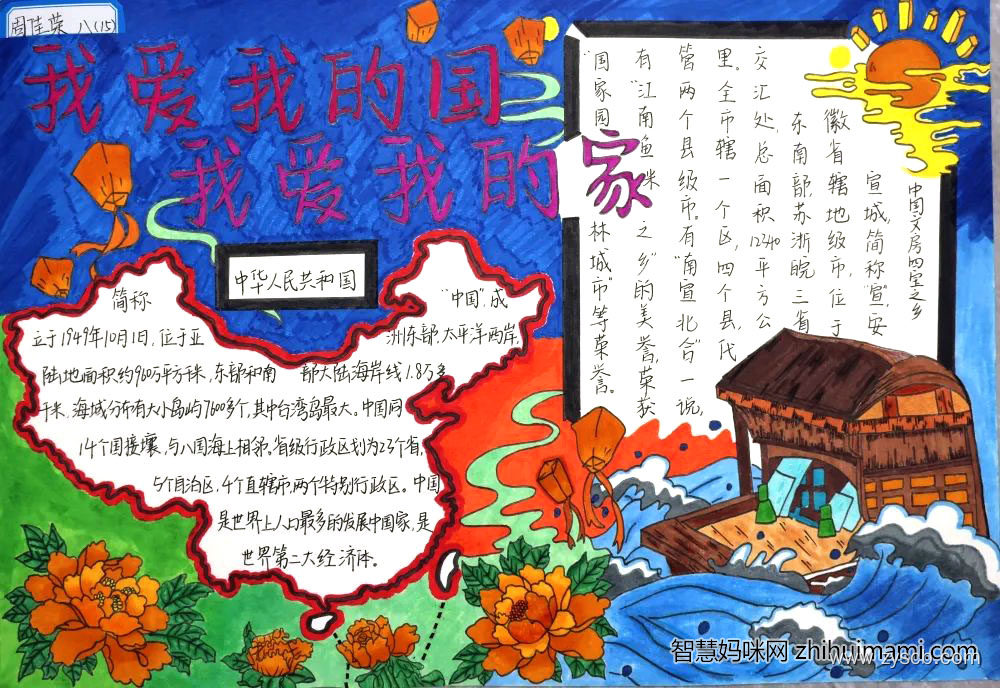 周佳荣 八(15)
我爱我的国
我爱我的家
中华人民共和国
简称 "中国",成
立于1949年10月1日,位于亚 洲东部,太平洋西岸,
陆地面积约960万平方千米,东部和南 部大陆海岸线1.8万多
千米,海域分布有大小岛屿7600多个,其中台湾岛最大。中国同
14个国接壤,与八国海上相邻。省级行政区划为23个省,
5个自治区,4个直辖市,两个特别行政区。中国
是世界上人口最多的发展中国家,是
世界第二大经济体。
中国文房四宝之乡
宣城,简称"宣",安
徽省辖地级市,位于
东南部,苏浙皖三省
交汇处,总面积12340平方公
里。全市辖一个区,四个县,代
管两个县级市。有"南宣北合"一说,
有"江南鱼米之乡"的美誉,荣获
"国家园林城市"等荣誉。
智慧妈咪网 zhihuimami.com
www.zyscb.com